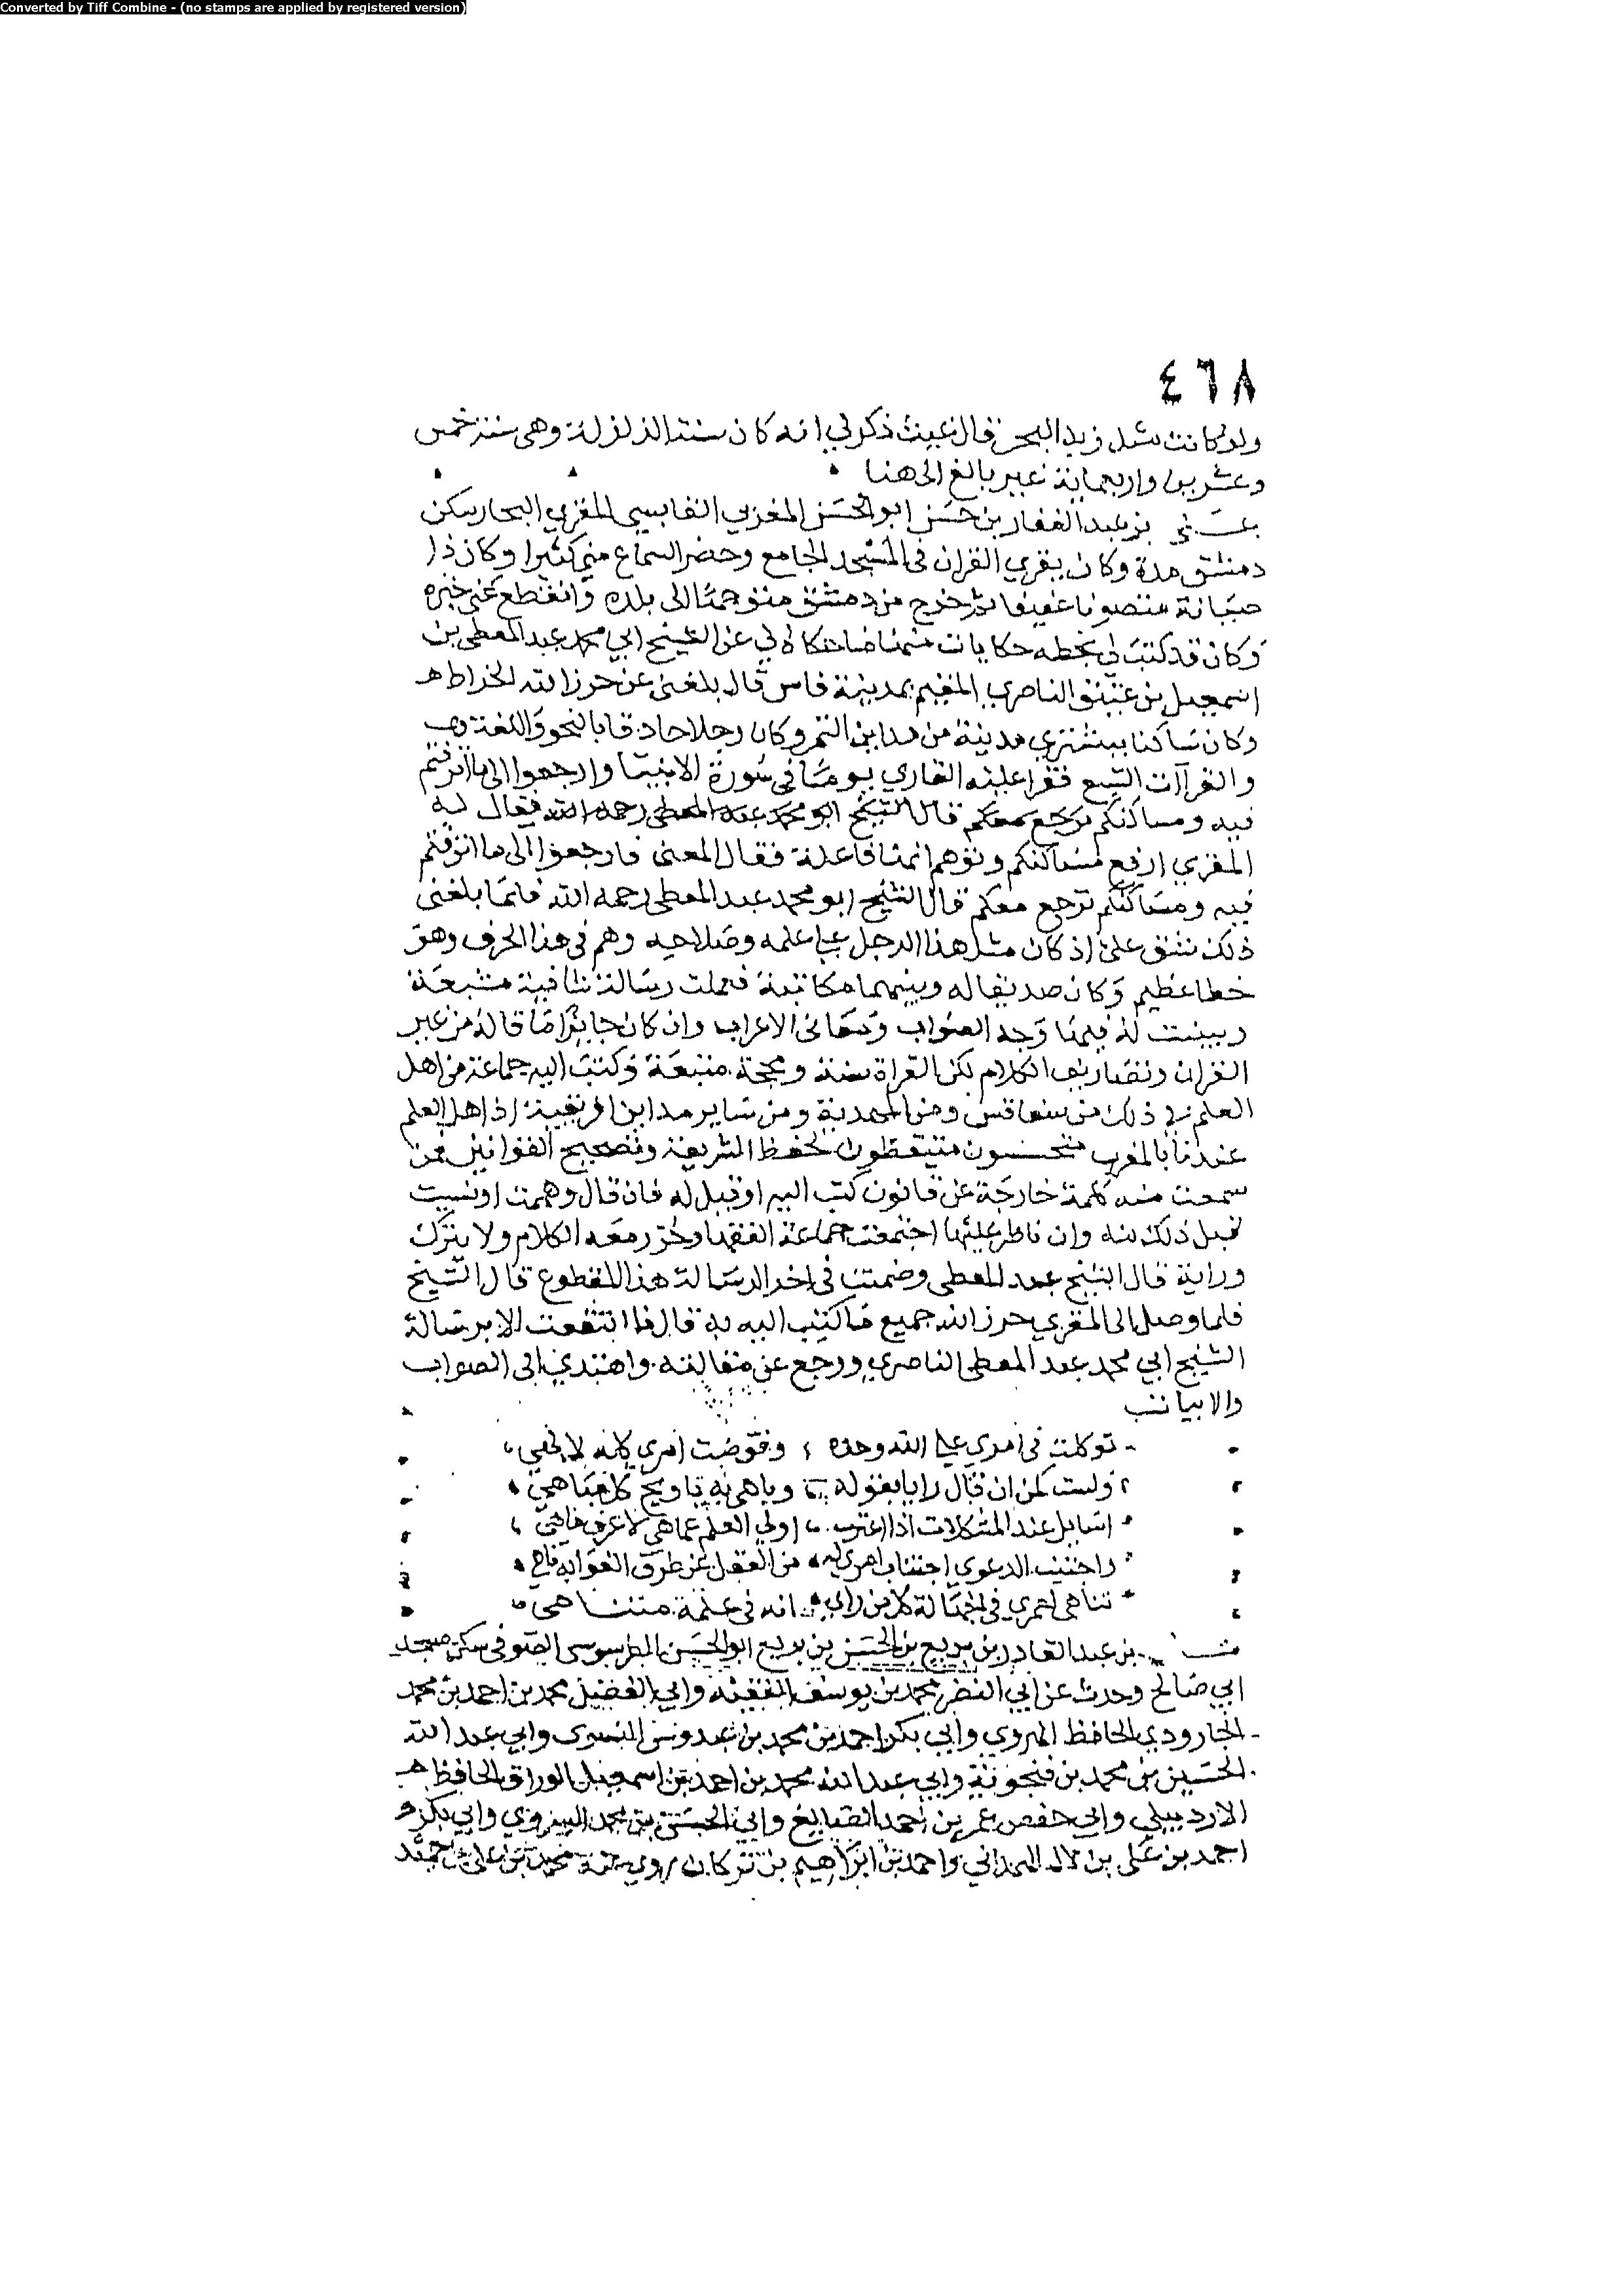 Converted by Tiff Combine - (no stamps are applied by registered version)
٤٦٨
ولو كانت مثل زبد البحر قال غيث ذكر لي انه كان سنة الزلزلة وهي سنة خمس
وعشرين واربعماية غير بالغ الى هنا
بن عبد الغفار بن حسن ابو الحسن المغربي القابسي المقري النجار سكن
دمشق مدة وكان يقري القران في المسجد الجامع وحضر السماع مني كثيرا وكان ذا
صيانة متصونا عفيفا ثم خرج من دمشق متوجها الى بلده وانقطع عني خبره
وكان قد كتب لي بخطه حكايات منها ما حكاه لي عن الشيخ ابي محمد عبد المعطي بن
اسمعيل بن عتيق الناصري المقيم بمدينة فاس قال بلغني عن حرز الله الخراط
وكان ساكنا بششتري مدينة من مداين التمر وكان رجلا حاذقا بالنحو واللغة
والقرآات السبع فقرا عليه القاري يوما في سورة الانبيا وارجعوا الى ما اترفتم
فيه ومساكنكم ترجع معكم قال الشيخ ابو محمد عبد المعطي رحمه الله فقال له
المقري ارفع مساكنكم وتوهم انها فاعلة فقال المعنى فارجعوا الى ما اترفتم
فيه ومساكنكم ترجع معكم قال الشيخ ابو محمد عبد المعطي رحمه الله فلما بلغني
ذلك شق علي اذ كان مثل هذا الرجل على علمه وصلاحه وهم في هذا الحرف وهو
خطا عظيم وكان صديقا له وبينهما مكاتبة فعملت رسالة شافية مشبعة
وبينت له فيها وجه الصواب ومعاني الاعراب وان كان جايزا ما قاله من غير
القران وتصاريف الكلام لكن القراة سنة ومحجة متبعة وكتب اليه جماعة من اهل
العلم في ذلك من سفاقس ومن المهدية ومن ساير مداين افريقية اذ اهل العلم
عندنا بالمغرب متيقظون لحفظ الشريعة وتصحيح القوانين فمن
سمعت منه كلمة خارجة عن قانون كتب اليه او قيل له فان قال وهمت او نسيت
قبل ذلك منه وان ناظر عليها اجتمعت جماعة الفقها وحرر معه الكلام ولا يترك
ورايه قال الشيخ عبد المعطي وضمنت في اخر الرسالة هذا المقطوع قال الشيخ
فلما وصل الى المقري حرز الله جميع ما كتب اليه به قال ما انتفعت الا برسالة
الشيخ ابي محمد عبد المعطي الناصري ورجع عن مقالته واهتدي الى الصواب
والابيات
توكلت في امري على الله وحده وفوضت امري كله لالهي
ولست كمن ان قال رايا بقوله وباهى به يا ويح كل مباهي
اسايل عند المشكلات اذا اعترت اولي العلم عما هي لاعرف ما هي
واجتنب الدعوى اجتناب امري له من العقل عن طرق الغواية ناهي
تناهى لعمري في الجهالة كل من راى انه في علمه متناهي
بن عبد القادر بن بريع بن الحسن بن بريع ابو الحسن الطرسوسي الصوفي سكن مسجد
ابي صالح وحدث عن ابي النضر محمد بن يوسف الفقيه وابي الفضيل محمد بن احمد بن محمد
الجارودي الحافظ الهروي وابي بكر احمد بن محمد بن عبدوس النسوي وابي عبد الله
الحسين بن محمد بن فنجويه وابي عبد الله محمد بن احمد بن اسمعيل الوراق الحافظ
الاردبيلي وابي حفص عمر بن احمد الصايغ وابي الحسن بن محمد وابي بكر
احمد بن علي بن لال الهمداني واحمد بن ابراهيم بن تركان روي عنه محمد بن علي بن احمد